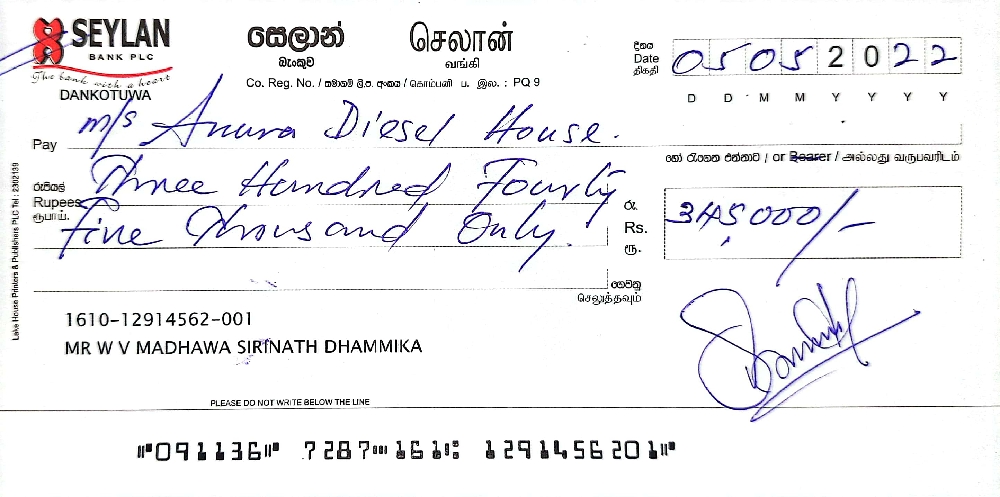 SEYLAN
BANK PLC
The bank with a heart
DANKOTUWA
සෙලාන්
බැංකුව
செலான்
வங்கி
Co. Reg. No. / සමාගම් ලි.ප. අංකය / கொம்பனி ப. இல. : PQ 9
දිනය
Date
திகதி
05 05 2022
D D M M Y Y Y Y
Pay m/s Anura Diesel House.
හෝ රැගෙන එන්නාට / or Bearer / அல்லது வருபவரிடம்
රුපියල්
Rupees
ரூபாய்.
Three Hundred Fourty
Five Thousand Only
රු.
Rs.
ரூ.
345000/-
ගෙවනු
செலுத்தவும்
Lake House Printers & Publishers PLC Tel : 2302139
1610-12914562-001
MR W V MADHAWA SIRINATH DHAMMIKA
PLEASE DO NOT WRITE BELOW THE LINE
⑈091136⑈ 7287⑉161⑆ 1291456201⑈